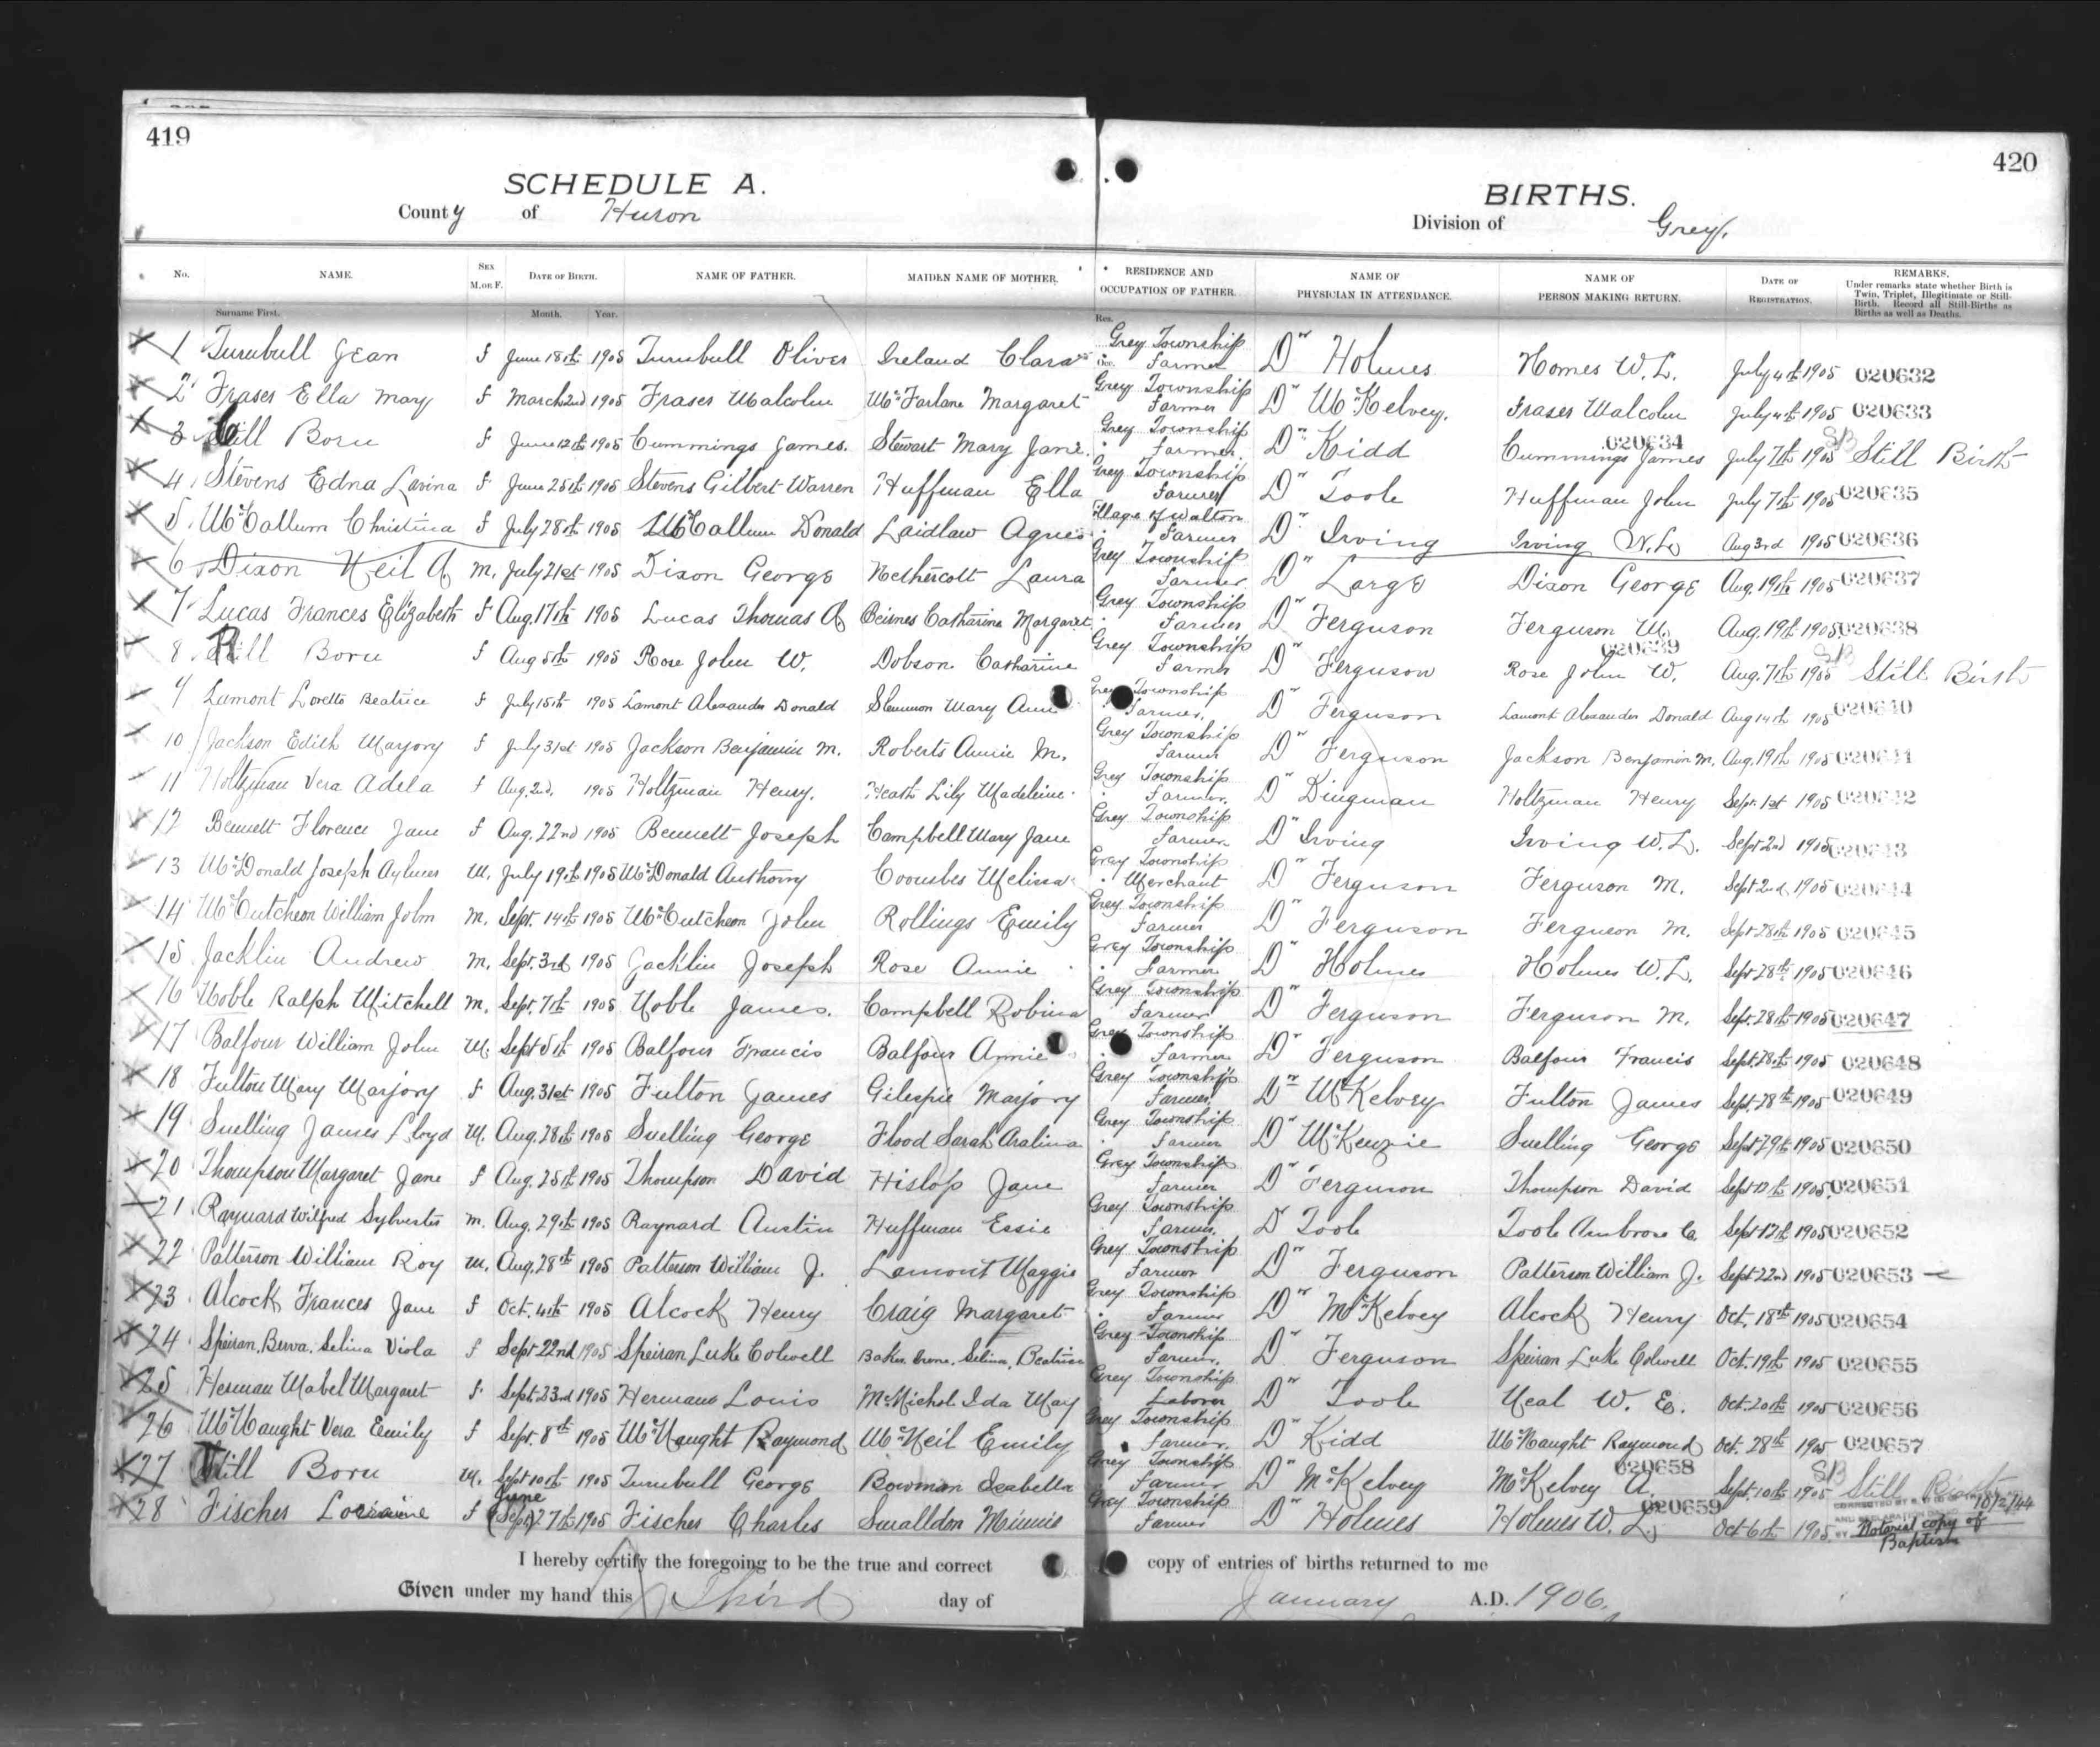 419
420
SCHEDULE A.
BIRTHS.
County of Huron
Division of Grey.
No. NAME. SEX M. OR F. DATE OF BIRTH. NAME OF FATHER. MAIDEN NAME OF MOTHER. RESIDENCE AND OCCUPATION OF FATHER. NAME OF PHYSICIAN IN ATTENDANCE. NAME OF PERSON MAKING RETURN. DATE OF REGISTRATION. REMARKS. Under remarks state whether Birth is Twin, Triplet, Illegitimate or Still-Birth. Record all Still-Births as Births as well as Deaths.
Surname First. Month. Year. Res.
1 Turnbull Jean f June 18th 1905 Turnbull Oliver Ireland Clara Grey Township Occ. Farmer Dr Holmes Homes W. L. July 4th 1905 020632
2 Fraser Ella May f March 2nd 1905 Fraser Malcolm McFarlane Margaret Grey Township Farmer Dr McKelvey. Fraser Malcolm July 4th 1905 020633
3 Still Born f June 12th 1905 Cummings James. Stewart Mary Jane. Grey Township Farmer. Dr Kidd Cummings James 020634 July 7th 1905 SB Still Birth
4 Stevens Edna Lavina f June 25th 1905 Stevens Gilbert Warren Huffman Ella Grey Township Farmer Dr Toole Huffman John July 7th 1905 020635
5. McCallum Christina f July 28th 1905 McCallum Donald Laidlaw Agnes Village of Walton Farmer Dr Irving Irving W. L. Aug 3rd 1905 020636
6 Dixon Neil A. m. July 21st 1905 Dixon George Nethercott Laura Grey Township Farmer Dr Large Dixon George Aug. 19th 1905 020637
7 Lucas Frances Elizabeth f Aug. 17th 1905 Lucas Thomas A Beirnes Catharine Margaret Grey Township Farmer Dr Ferguson Ferguson M. Aug. 19th 1905 020638
8 Still Born f Aug 5th 1905 Rose John W. Dobson Catharine Grey Township Farmer Dr Ferguson Rose John W. 020639 Aug. 7th 1905 SB Still Birth
9 Lamont Loretto Beatrice f July 15th 1905 Lamont Alexander Donald Slemmon Mary Ann Grey Township Farmer. Dr Ferguson Lamont Alexander Donald Aug 14th 1905 020640
10 Jackson Edith Marjory f July 31st 1905 Jackson Benjamin M. Roberts Annie M. Grey Township Farmer Dr Ferguson Jackson Benjamin M. Aug. 19th 1905 020641
11 Holtzman Vera Adela f Aug. 2nd. 1905 Holtzman Henry. Heath Lily Madeleine Grey Township Farmer. Dr Dingman Holtzman Henry Sept. 1st 1905 020642
12 Bennett Florence Jane f Aug. 22nd 1905 Bennett Joseph Campbell Mary Jane Grey Township Farmer Dr Irving Irving W. L. Sept 2nd 1905 020643
13 McDonald Joseph Aylmer M. July 19th 1905 McDonald Anthony Coombes Melissa Grey Township Merchant Dr Ferguson Ferguson M. Sept. 2nd 1905 020644
14 McCutcheon William John M. Sept. 14th 1905 McCutcheon John Rollings Emily Grey Township Farmer Dr Ferguson Ferguson M. Sept 28th 1905 020645
15 Jacklin Andrew M. Sept. 3rd 1905 Jacklin Joseph Rose Annie Grey Township Farmer Dr Holmes Holmes W. L. Sept 28th 1905 020646
16 Noble Ralph Mitchell M. Sept. 7th 1905 Noble James. Campbell Robina Grey Township Farmer Dr Ferguson Ferguson M. Sept. 28th 1905 020647
17 Balfour William John M. Sept 5th 1905 Balfour Francis Balfour Annie Grey Township Farmer Dr Ferguson Balfour Francis Sept. 28th 1905 020648
18 Fulton Mary Marjory f Aug. 31st 1905 Fulton James Gilespie Marjory Grey Township Farmer Dr McKelvey Fulton James Sept. 28th 1905 020649
19 Snelling James Lloyd M. Aug. 28th 1905 Snelling George Flood Sarah Aralina Grey Township Farmer Dr McKenzie Snelling George Sept 29th 1905 020650
20 Thompson Margaret Jane f Aug. 25th 1905 Thompson David Hislop Jane Grey Township Farmer Dr Ferguson Thompson David Sept 12th 1905 020651
21 Raynard Wilfred Sylvester M. Aug. 29th 1905 Raynard Austin Huffman Essie Grey Township Farmer. Dr Toole Toole Ambrose C. Sept 12th 1905 020652
22 Patterson William Roy M. Aug. 28th 1905 Patterson William J. Lamont Maggie Grey Township Farmer Dr Ferguson Patterson William J. Sept 22nd 1905 020653
23 Alcock Frances Jane f Oct. 4th 1905 Alcock Henry Craig Margaret Grey Township Farmer Dr McKelvey Alcock Henry Oct. 18th 1905 020654
24 Speiran. Berva. Selina Viola f Sept 22nd 1905 Speiran Luke Colwell Baker. Irene. Selina. Beatrice Grey Township Farmer. Dr Ferguson Speiran Luke Colwell Oct. 19th 1905 020655
25 Herman Mabel Margaret f. Sept. 23rd 1905 Hermans Louis McMichol Ida May Grey Township Laborer Dr Toole Neal W. E. Oct. 20th 1905 020656
26 McNaught Vera Emily f Sept. 8th 1905 McNaught Raymond McNeil Emily Grey Township Farmer. Dr Kidd McNaught Raymond Oct. 28th 1905 020657
27 Still Born M. Sept 10th 1905 Turnbull George Bowman Isabella Grey Township Farmer Dr McKelvey McKelvey A. 020658 Sept. 10th 1905 SB Still Birth
28 Fischer Lorraine f June (Sept) 27th 1905 Fischer Charles Smalldon Minnie Grey Township Farmer Dr Holmes Holmes W. L. 020659 Oct 6th 1905 18/2/44 BY Notarial copy of Baptism
I hereby certify the foregoing to be the true and correct copy of entries of births returned to me
Given under my hand this Third day of January A.D. 1906.